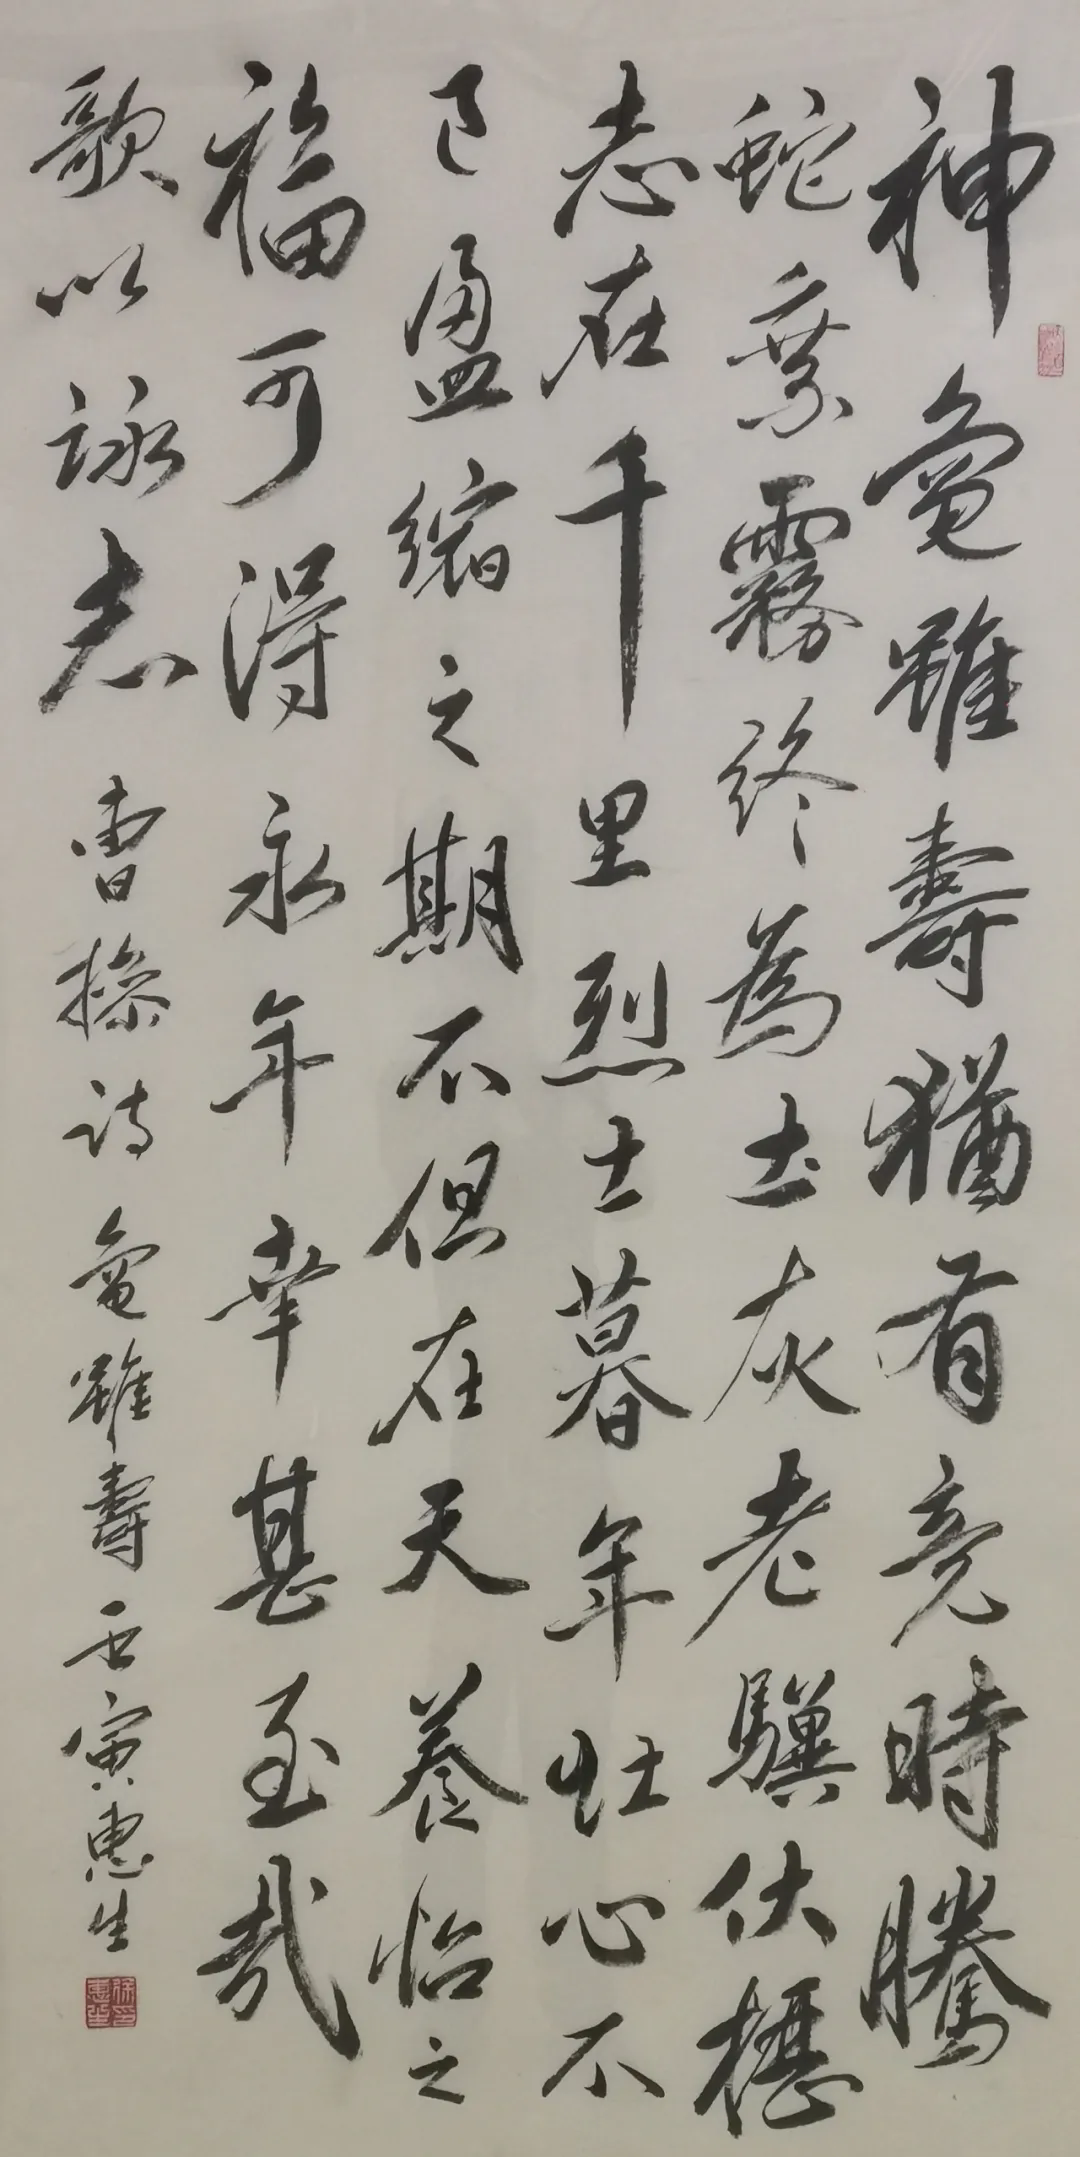 神龜雖壽猶有竟時騰
蛇乘霧終為土灰老驥伏櫪
志在千里烈士暮年壯心不
已盈縮之期不但在天養怡之
福可得永年幸甚至哉
歌以詠志 曹操詩龜雖壽壬寅惠生
徐惠生印